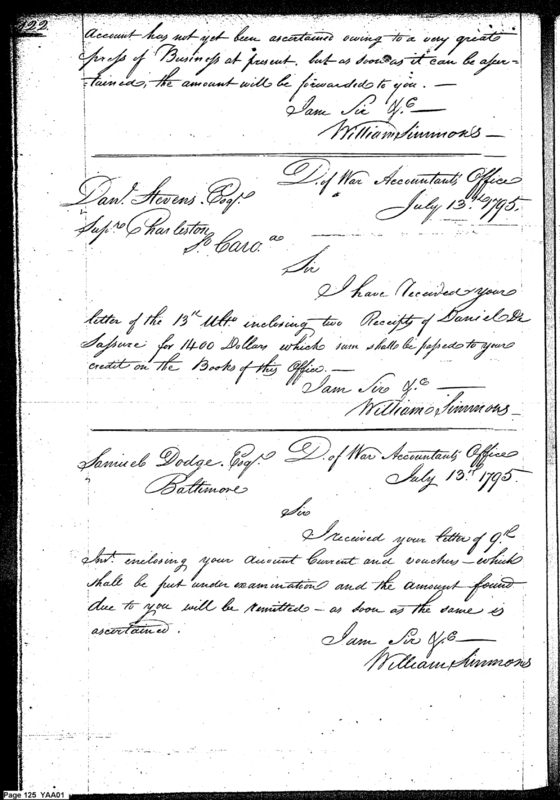 122
account has not yet been ascertained owing to a very great
press of Business at present, but as soon as it can be ascer-
-tained, the amount will be forwarded to you. —
I am Sir &c —
William Simmons —
D. of War Accountants Office
July 13th 1795.
Danl. Stevens. Esqr.
Supr. Charleston
So. Caroa
Sir
I have Received your
letter of the 13th Ulto. inclosing two Receipts of Daniel De
Sassure for 1400 Dollars which sum shall be passed to your
credit on the Books of this Office. —
I am Sir &c —
William Simmons —
Samuel Dodge. Esqr. D. of War Accountants Office
Baltimore July 13th 1795
Sir
I received your letter of 9th
Inst. enclosing your account Current and vouchers — which
shall be put under examination and the amount found
due to you will be remitted — as soon as the same is
ascertained.
I am Sir &c —
William Simmons
Page 125 YAA01